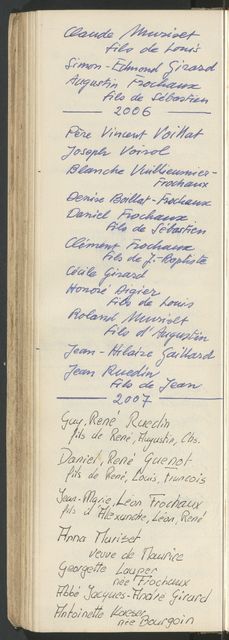 Claude Murizet
fils de Louis
Simon-Edmond Girard
Augustin Frochaux
fils de Sébastien
2006
Père Vincent Voillat
Joseph Voirol
Blanche
Frochaux
Denise Boillat-Frochaux
Daniel Frochaux
fils de Sébastien
Clément Frochaux
fils de J.-Baptiste
Cécile Girard
Honoré Digier
fils de Louis
Roland Muriset
fils d'Augustin
Jean-Hilaire Gaillard
Jean Ruedin
fils de Jean
2007
Guy, René Ruedin
fils de René, Augustin, Chs.
Daniel, René Guenot
fils de René, Louis, Francois
Jean-Marie, Léon Frochaux
fils d'Alexandre, Léon, René
Anna Muriset
veuve de Maurice
Georgette Lauper
née Frochaux
Abbé Jacques-André Girard
Antoinette
née Bourgoin